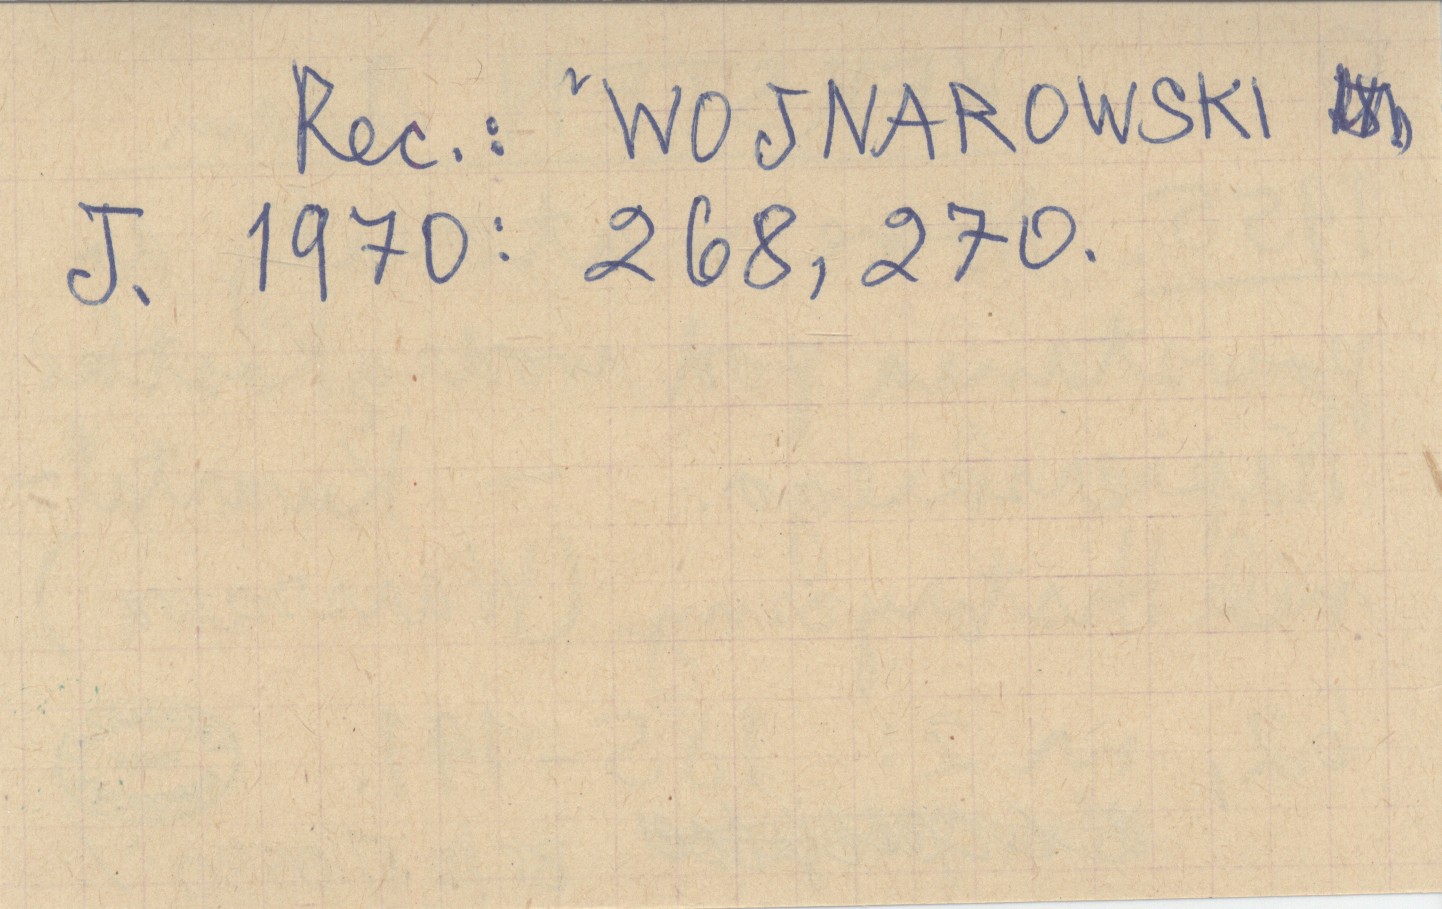 Rec.: WOJNAROWSKI
J. 1970: 268, 270.